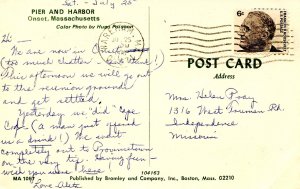 Sat. - July 25
PIER AND HARBOR
Onset, Massachusetts
Color Photo by Hugh
Hi:
We are now in
(too much chatter - can't think!)
This afternoon we will go out
to the reunion grounds
and get settled.
Yesterday we did "Cape
Cod" (a man just offered
us a drink!) We went
completely out to Provincetown
on the very tip. Having fun -
wish you were here!
Love
104163
MA 1097
Published by Bromley and Company, Inc., Boston, Mass. 02210
6¢
POST CARD
Address
Mrs. Helen
1316 West Truman Rd.
Independence
Missouri